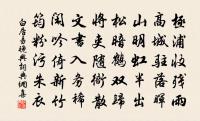 極浦收残雨
高城駐落暉
山明虹半出
松暗鶴双歸
將吏随衙散
文書入務稀
閑吟倚新竹
筠粉污朱衣
白居易晚興詞典網喜